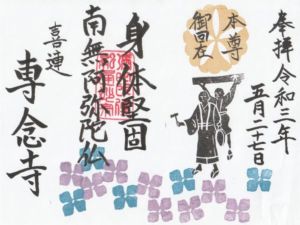 奉拝 令和三年
五月二十七日
本尊
御回在
身体堅固
南無阿弥陀仏
喜連
専念寺